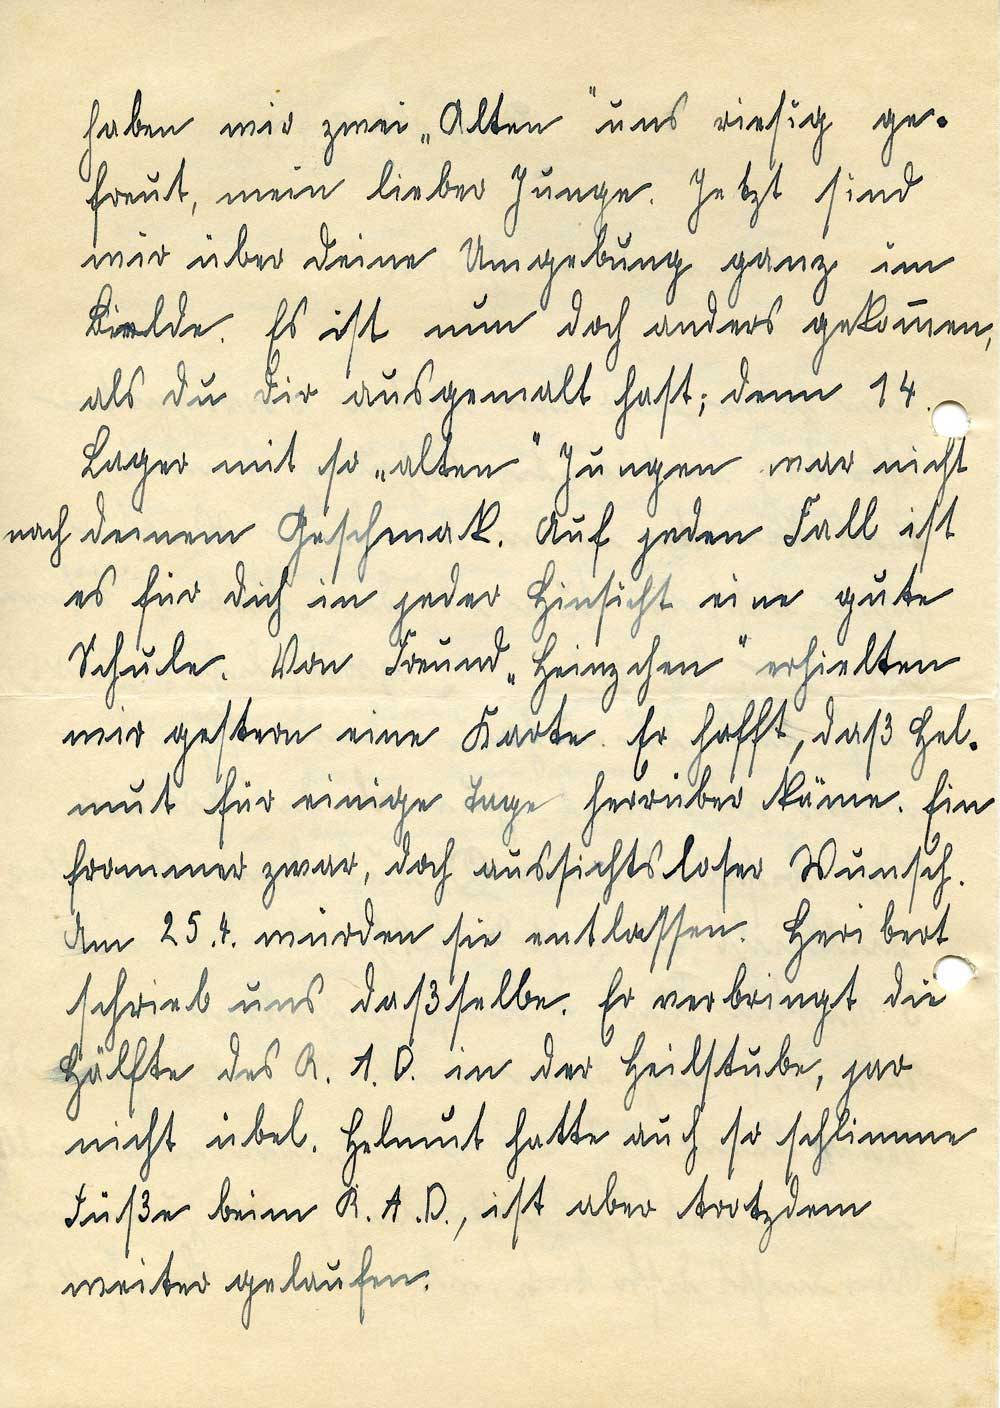 haben wir zwei „Alten" uns riesig ge-
freut, mein lieber Junge. Jetzt sind
wir über deine Umgebung ganz im
Bielde. Es ist nun doch anders gekom̄en,
als du dir ausgemalt hast; denn 14.
Lager mit so „alten" Jungen war nicht
nach deinem Geschmak. Auf jeden Fall ist
es für dich in jeder Hinsicht eine gute
Schule. Von Freund „Heinzchen" erhielten
wir gestern eine Karte. Er hofft, daß Hel-
mut für einige Tage herrüber käme. Ein
frommer zwar, doch aussichtsloser Wunsch.
Am 25.4. würden sie entlassen. Heribert
schrieb uns daßselbe. Er verbringt die
Hälfte des R. A. D. in der Heilstube, gar
nicht übel. Helmut hatte auch so schlimme
Füße beim R. A. D., ist aber trotzdem
weiter gelaufen.